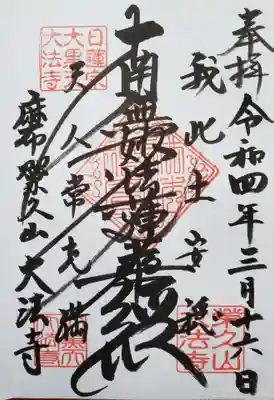 奉拝 令和四年三月十六日
我此土安穏
南無妙法蓮華経
天人常充満
麻布 栄久山 大法寺
日蓮宗
大黒天
大法寺
栄久山
大法寺